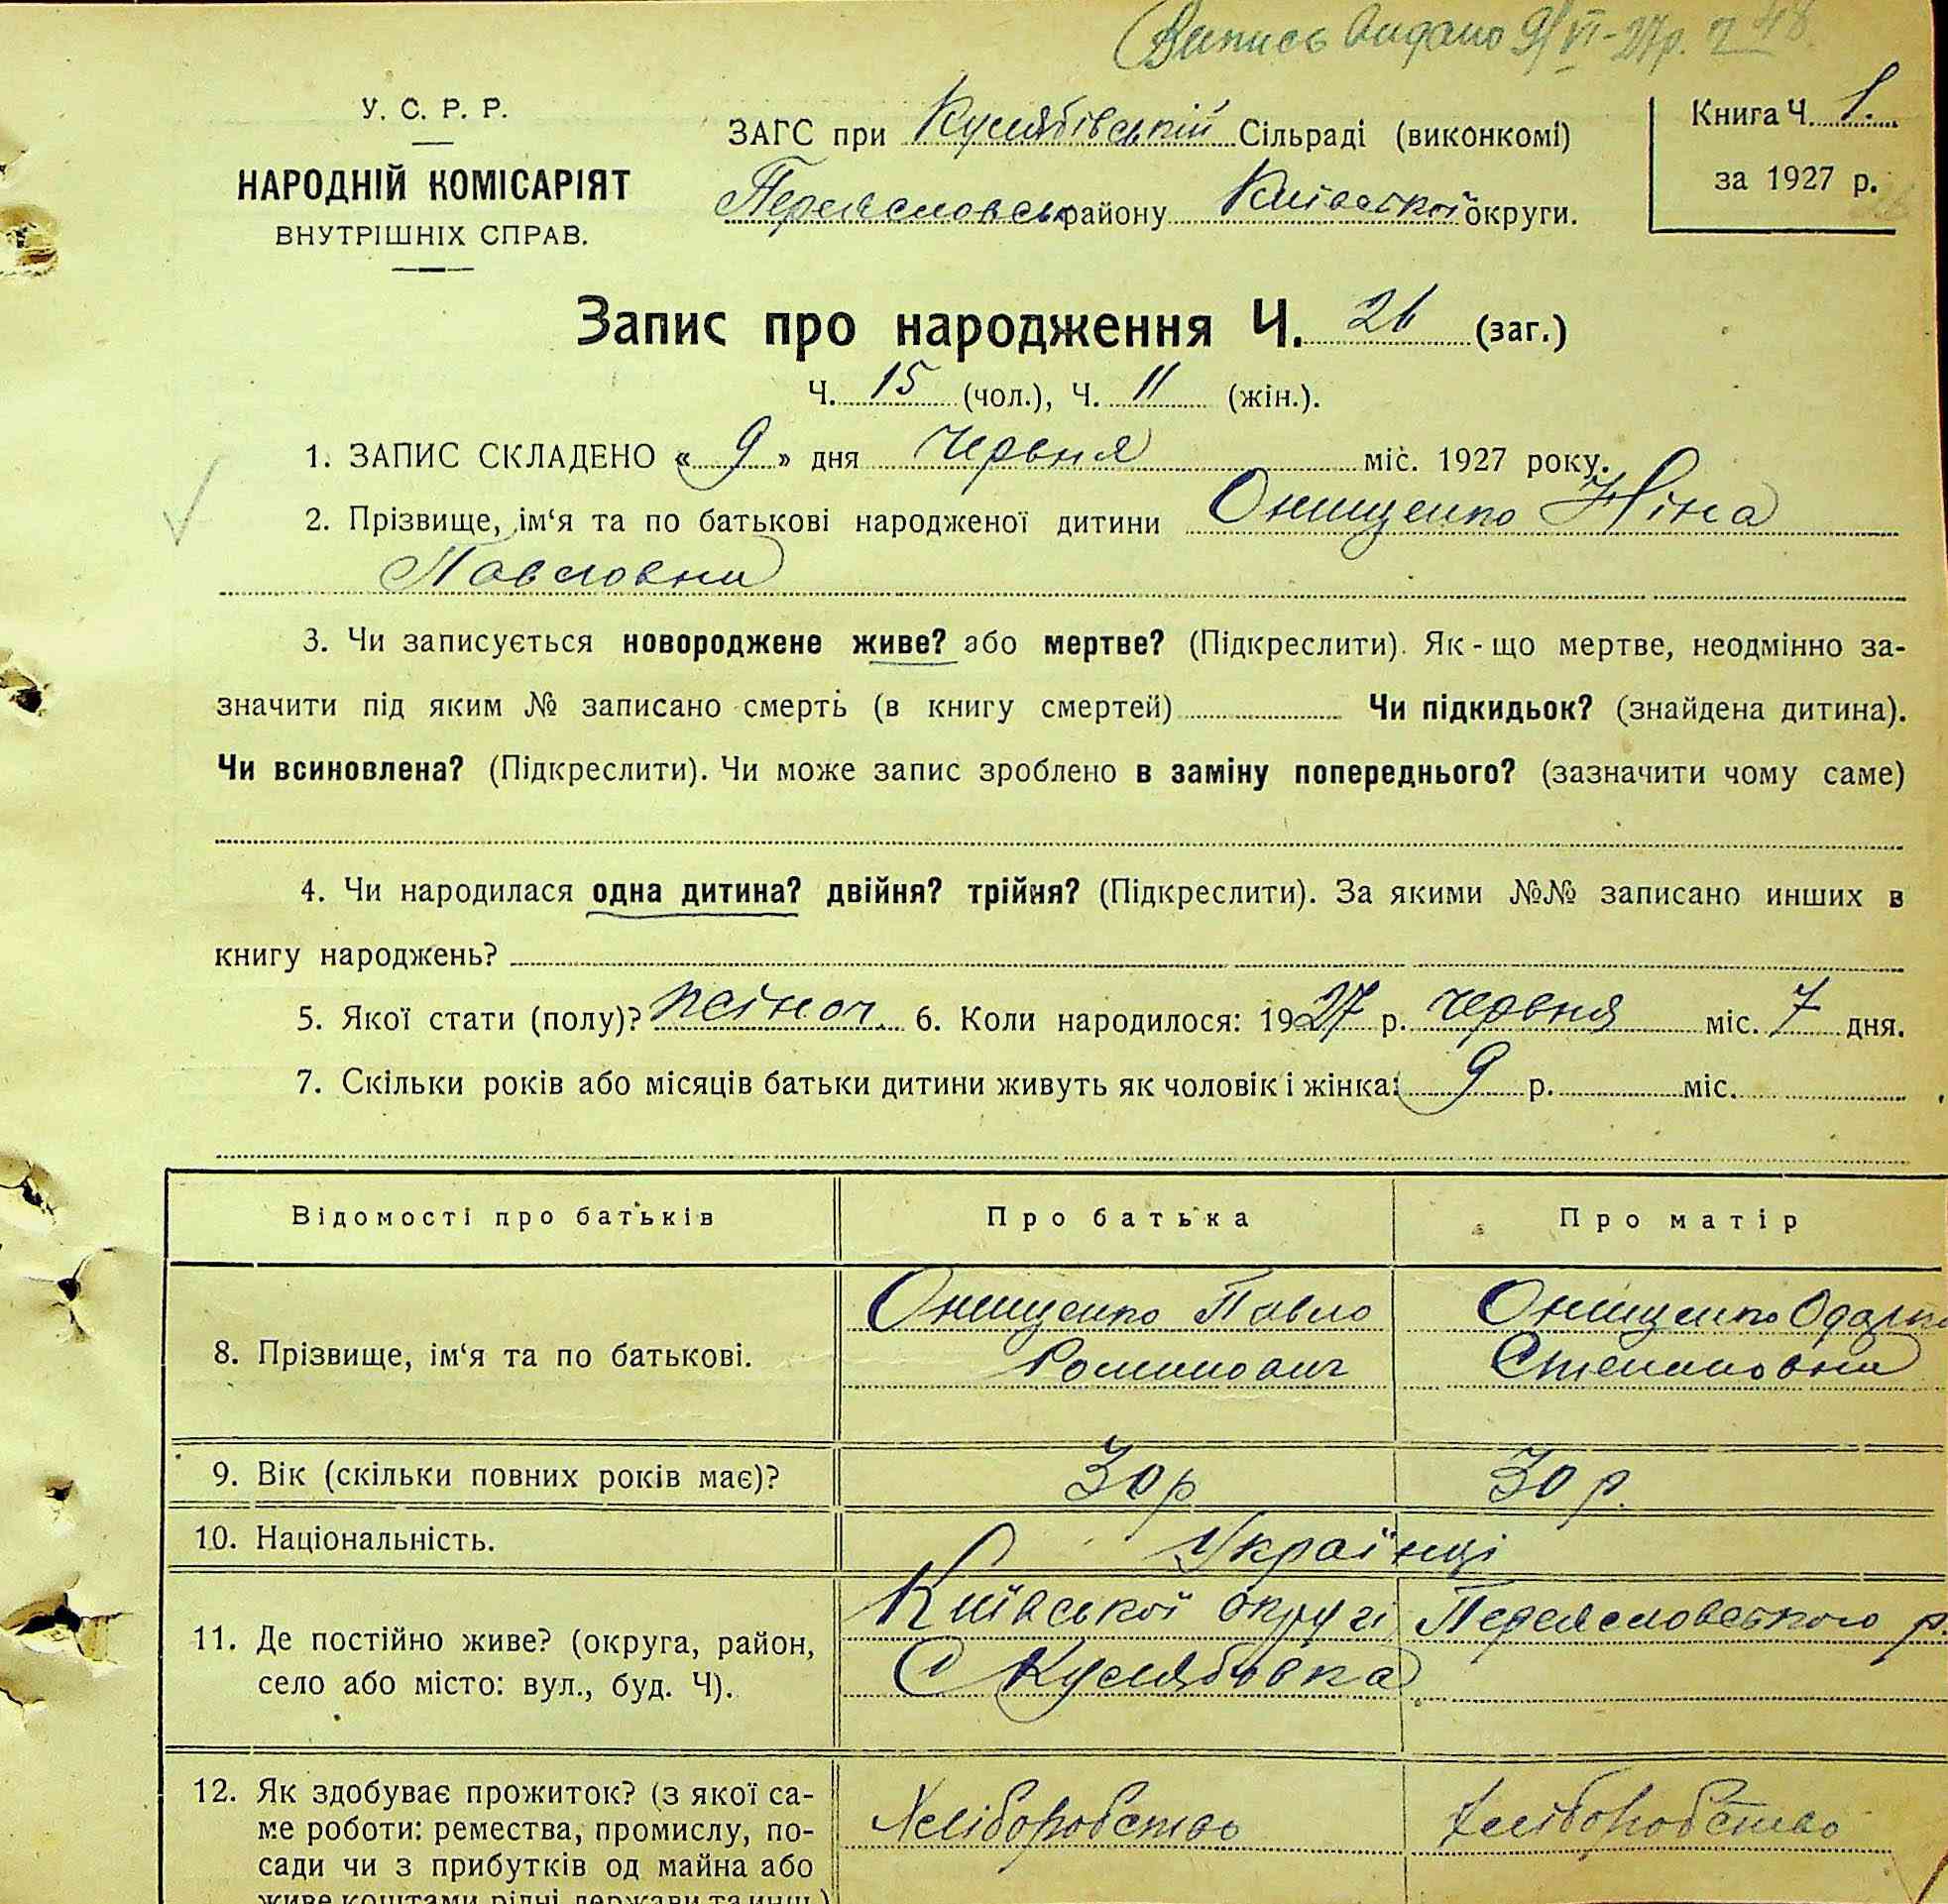 Випись видано 9/VI-27р. п 48.
У. С. Р. Р.
НАРОДНІЙ КОМІСАРІЯТ
ВНУТРІШНІХ СПРАВ.
ЗАГС при Кулябівській Сільраді (виконкомі)
Переясловськ району Київської округи.
Книга Ч. 1.
за 1927 р.
Запис про народження Ч. 26 (заг.)
Ч. 15 (чол.), Ч. 11 (жін.).
1. ЗАПИС СКЛАДЕНО « 9 » дня червня міс. 1927 року.
2. Прізвище, ім‘я та по батькові народженої дитини Онищенко Ніна
Павловна
3. Чи записується новороджене живе? або мертве? (Підкреслити). Як-що мертве, неодмінно за-
значити під яким № записано смерть (в книгу смертей) Чи підкидьок? (знайдена дитина).
Чи всиновлена? (Підкреслити). Чи може запис зроблено в заміну попереднього? (зазначити чому саме)
4. Чи народилася одна дитина? двійня? трійня? (Підкреслити). За якими №№ записано инших в
книгу народжень?
5. Якої стати (полу)? жіноч. 6. Коли народилося: 1927 р. червня міс. 7 дня.
7. Скільки років або місяців батьки дитини живуть як чоловік і жінка: 9 р. міс.
Відомості про батьків Про батька Про матір
8. Прізвище, ім‘я та по батькові.
Онищенко Павло
Романович
Онищенко Одарка
Степановна
9. Вік (скільки повних років має)? 30 р 30 р.
10. Національність. Українці
11. Де постійно живе? (округа, район,
село або місто: вул., буд. Ч).
Київської округі Переясловського р.
С Кулябовка
12. Як здобуває прожиток? (з якої са-
ме роботи: ремества, промислу, по-
сади чи з прибутків од майна або
живе коштами рідні, держави та инш.)
Хліборобство хліборобство